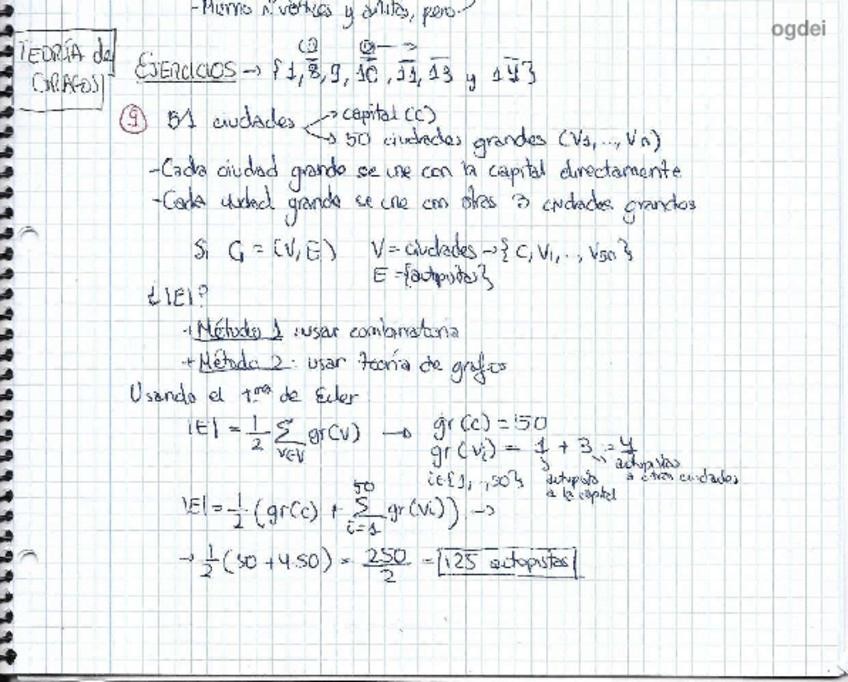 - Mismo nº vértices y aristas, pero
ogdei
TEORÍA de GRAFOS
EJERCICIOS → {1, 8, 9, 10, 11, 13 y 14}
9 51 ciudades → capital (c)
→ 50 ciudades grandes (V1, ..., Vn)
- Cada ciudad grande se une con la capital directamente
- Cada ciudad grande se une con otras 3 ciudades grandes
Si G = (V, E) V = ciudades → {C, V1, .., V50}
E = {autopistas}
¿|E|?
+ Método 1: usar combinatoria
+ Método 2: usar teoría de grafos
Usando el tma de Euler
|E| = 1/2 Σ v∈V gr(v) → gr(c) = 50
gr(vi) = 1 + 3 = 4
i∈{1, .., 50} autopista a la capital autopistas a otras ciudades
|E| = 1/2 (gr(c) + Σ i=1 50 gr(vi)) →
→ 1/2 (50 + 4·50) = 250/2 = 125 autopistas